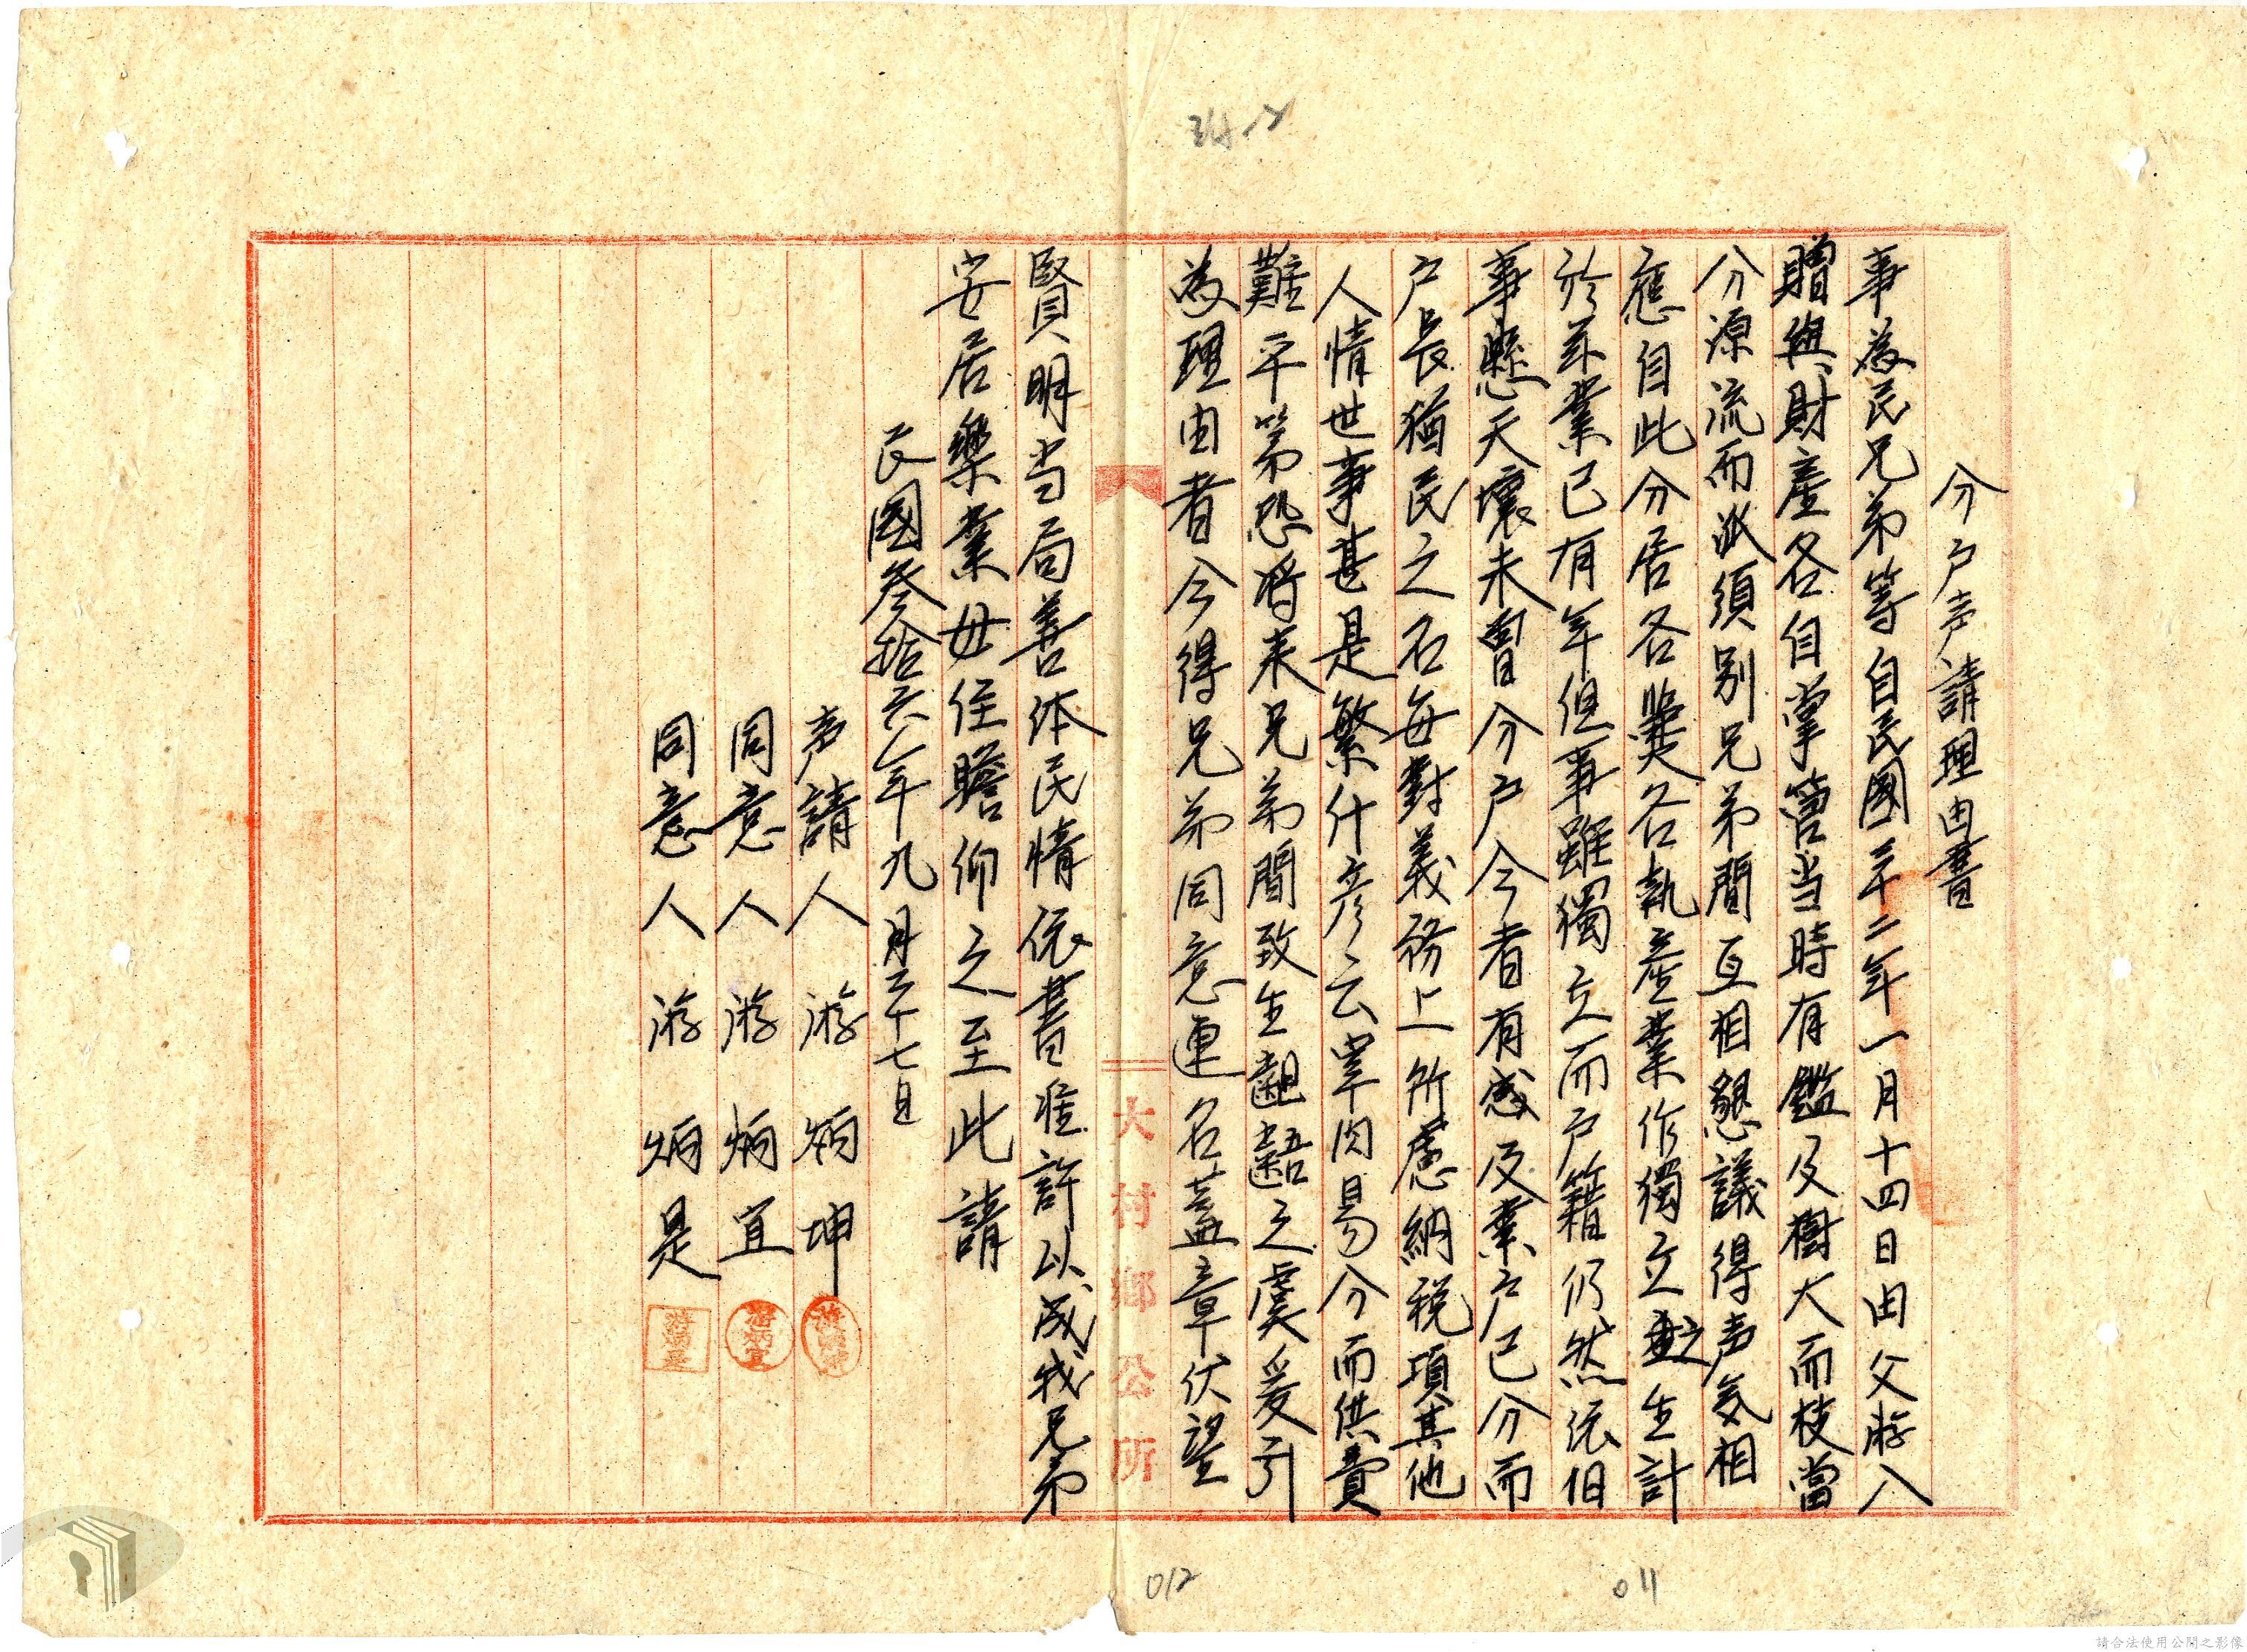 分戶声請理由書
事為民兄弟等自民國三十二年一月十四日由父游入
贈與財產各自掌管当時有鑑及樹大而枝當
分源流而派須別兄弟間互相懇議得声気相
應自此分居各爨各執產業作獨立之生計
於茲業已有年但事雖獨立而戶籍仍然依旧
事懸天壤未曾分戶今者有感及業戶已分而
戶長猶民之名每對義務上所慮納税項其他
人情世事甚是繁什彦云宰肉易分而供費
難平第恐将来兄弟間致生齟齬之虞爰引
為理由者今得兄弟同意連名蓋章伏望
賢明当局善体民情依書准許以成我兄弟
安居樂業毋任瞻仰之至此請
民國叁拾六年九月二十七日
声請人 游炳坤
同意人 游炳宜
同意人 游炳是
大村鄉公所
012
011
請合法使用公開之影像